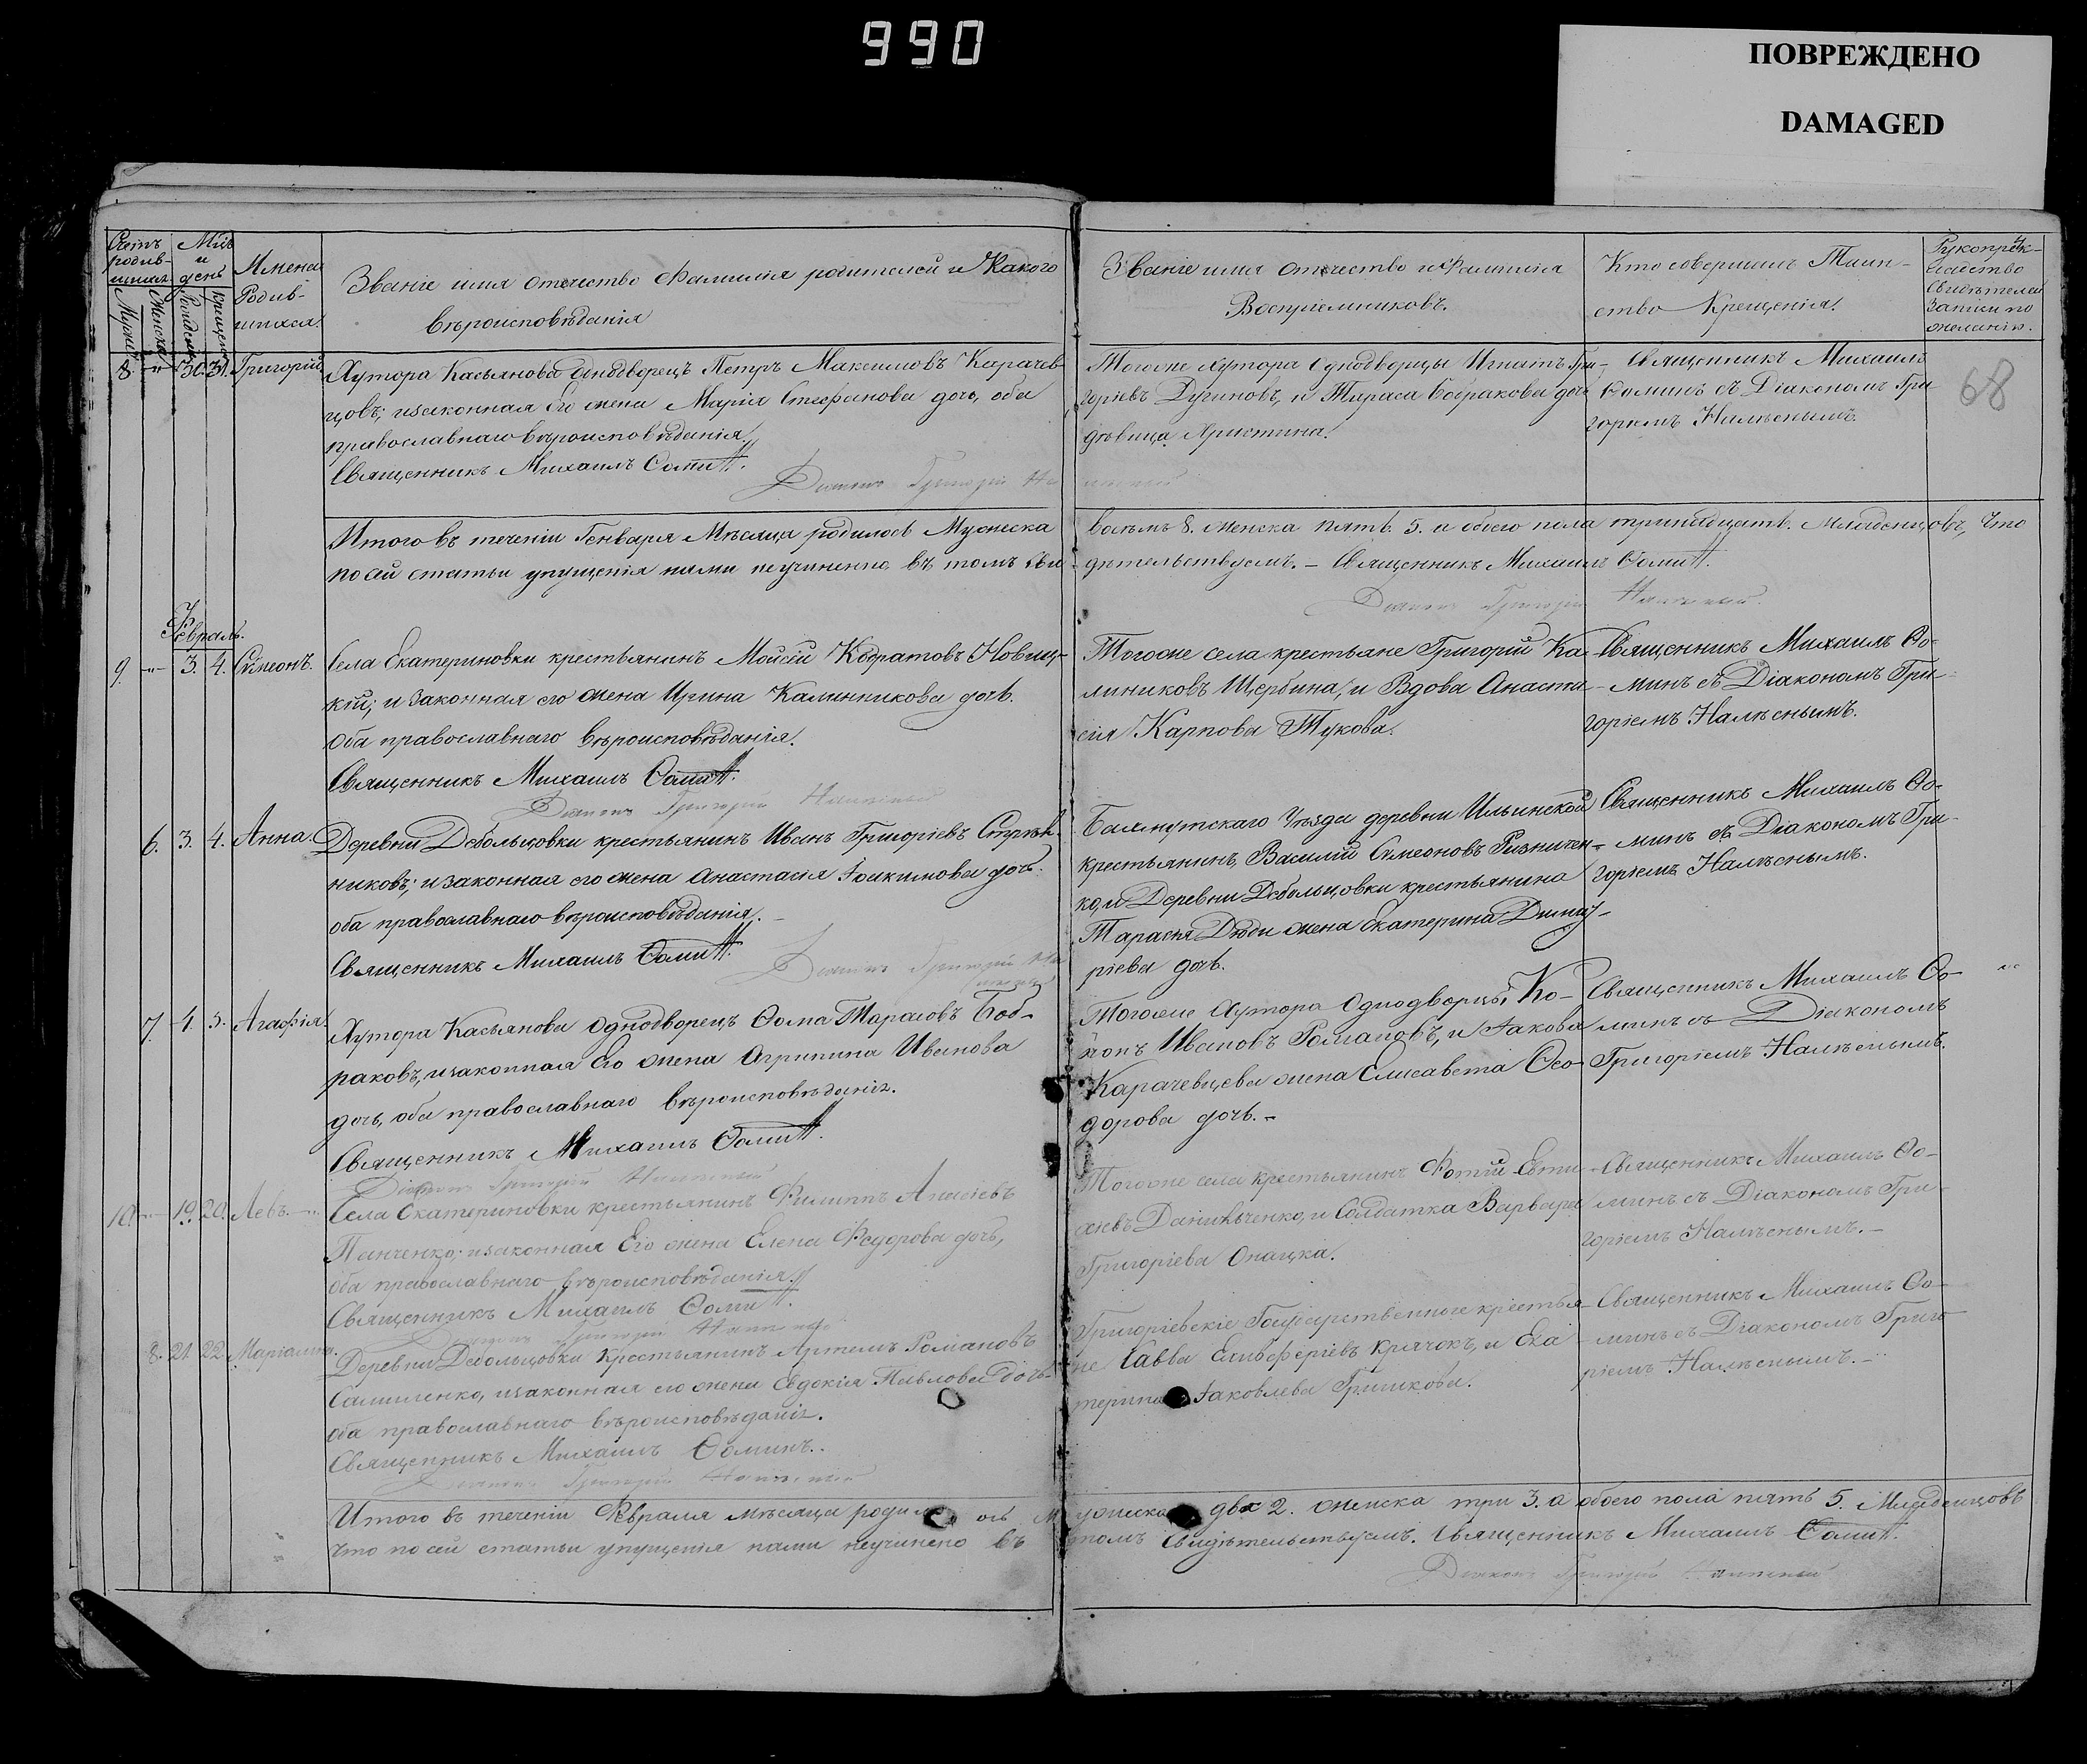 990
ПОВРЕЖДЕНО
DAMAGED
Счетъ родив-шихся
Мужеска
Женска
Мѣс. и день
Рождения
Крещения
Имена Родив-шихся.
Званіе имя отечество Фамилія родителей и Какого
вѣроисповѣданія
Званіе имя отечество и Фамилія
Воспріемниковъ.
Кто совершилъ Таин-
ство Крещенія.
Рукоприк-
ладство
Свидѣтелей
Записи по
желанію.
68
8. -"- 30. 31. Григорій
Хутора Касьянова однодворецъ Петръ Максимовъ Карачев-
цовъ; и законная Его жена Марія Стефанова дочь, оба
православнаго вѣроисповѣданія.
Священникъ Михаилъ Ѳоминъ.
Діаконъ Григорій
Тогоже Хутора Однодворцы Игнатъ Гри-
горіевъ Дугиновъ, и Тараса Бобракова дочь
дѣвица Христина.
Священникъ Михаилъ
Ѳоминъ съ Діакономъ Гри
горіемъ Налѣснымъ.
Итого въ теченіи Генваря Мѣсяца родилось Мужеска
восемь 8. женска пять 5. и обоего пола тринадцать. Младенцовъ, Что
по сей статьи упущенія нами неучиненно, въ томъ Сви-
дѣтельствуемъ. – Священникъ Михаилъ Ѳоминъ.
Діаконъ Григорій
Февраль.
9. -"- 3. 4. Симеонъ.
Села Екатериновки крестьянинъ Моисей Кодратовъ Новиц-
кій; и законная его жена Ирина Калинникова дочь.
Оба православнаго вѣроисповѣданія.
Священникъ Михаилъ Ѳоминъ.
Діаконъ Григорій
Тогоже села крестьяне Григорій Ка-
линиковъ Щербина, и Вдова Анаста-
сія Карпова Тукова.
Священникъ Михаилъ Ѳо-
минъ съ Діакономъ Гри-
горіемъ Налѣснымъ.
6. 3. 4. Анна.
Деревни Дебольцовки крестьянинъ Иванъ Григоріевъ
никовъ; и законная его жена Анастасія Іоакимова дочь.
оба православнаго вѣроисповѣданія.
Священникъ Михаилъ Ѳоминъ.
Діаконъ Григорій
Бахмутскаго Уѣзда деревни Ильинской
крестьянинъ Василій Симеоновъ Ризничен-
ко, и Деревни Дебольцовки крестьянина
Тарасія Дѣди жена Екатерина Димит-
ріева дочь.
Священникъ Михаилъ Ѳо-
минъ съ Діакономъ Гри-
горіемъ Налѣснымъ.
7. 4. 5. Агафія.
Хутора Касьянова Однодворецъ Ѳома Тарасовъ Боб-
раковъ, и законная Его жена Агрипина Иванова
дочь, оба православнаго вѣроисповѣданія.
Священникъ Михаилъ Ѳоминъ.
Діаконъ Григорій
Тогоже Хутора Однодворцы Ко-
нонъ Ивановъ Романовъ, и Іакова
Карачевцева жена Елисавета Ѳео-
дорова дочь. –
Священникъ Михаилъ Ѳо-
минъ съ Діакономъ
Григоріемъ Налѣснымъ.
10. -"- 19. 20. Левъ.
Села Екатериновки крестьянинъ Филиппъ Алексіевъ
Панченко; и законная Его жена Елена Федорова дочь,
оба православнаго вѣроисповѣданія.
Священникъ Михаилъ Ѳоминъ.
Діаконъ Григорій
Тогоже села крестьянинъ Фотій Евти-
хіевъ Данильченко, и Солдатка Варвара
Григоріева Онацка.
Священникъ Михаилъ Ѳо-
минъ съ Діакономъ Гри-
горіемъ Налѣснымъ. –
8. 21 22 Маріамна.
Деревни Дебольцовки Крестьянинъ Артемъ Романовъ
Самиленко, и законная его жена Евдокія Павлова дочь.
оба православнаго вѣроисповѣданія.
Священникъ Михаилъ Ѳоминъ.
Діаконъ Григорій
Григоріевскіе Государственные крестья-
не Савва Елевферіевъ Крячокъ, и Ека-
терина Іаковлева Гришкова.
Священникъ Михаилъ Ѳо-
минъ съ Діакономъ Григо-
ріемъ Налѣснымъ. –
Итого въ теченіи Февраля мѣсяца родилось Мужеска два 2. женска три 3. а обоего пола пять 5. Младенцовъ
Что по сей статьи упущенія нами неучинено въ томъ Свидѣтельствуемъ. Священникъ Михаилъ Ѳоминъ.
Діаконъ Григорій